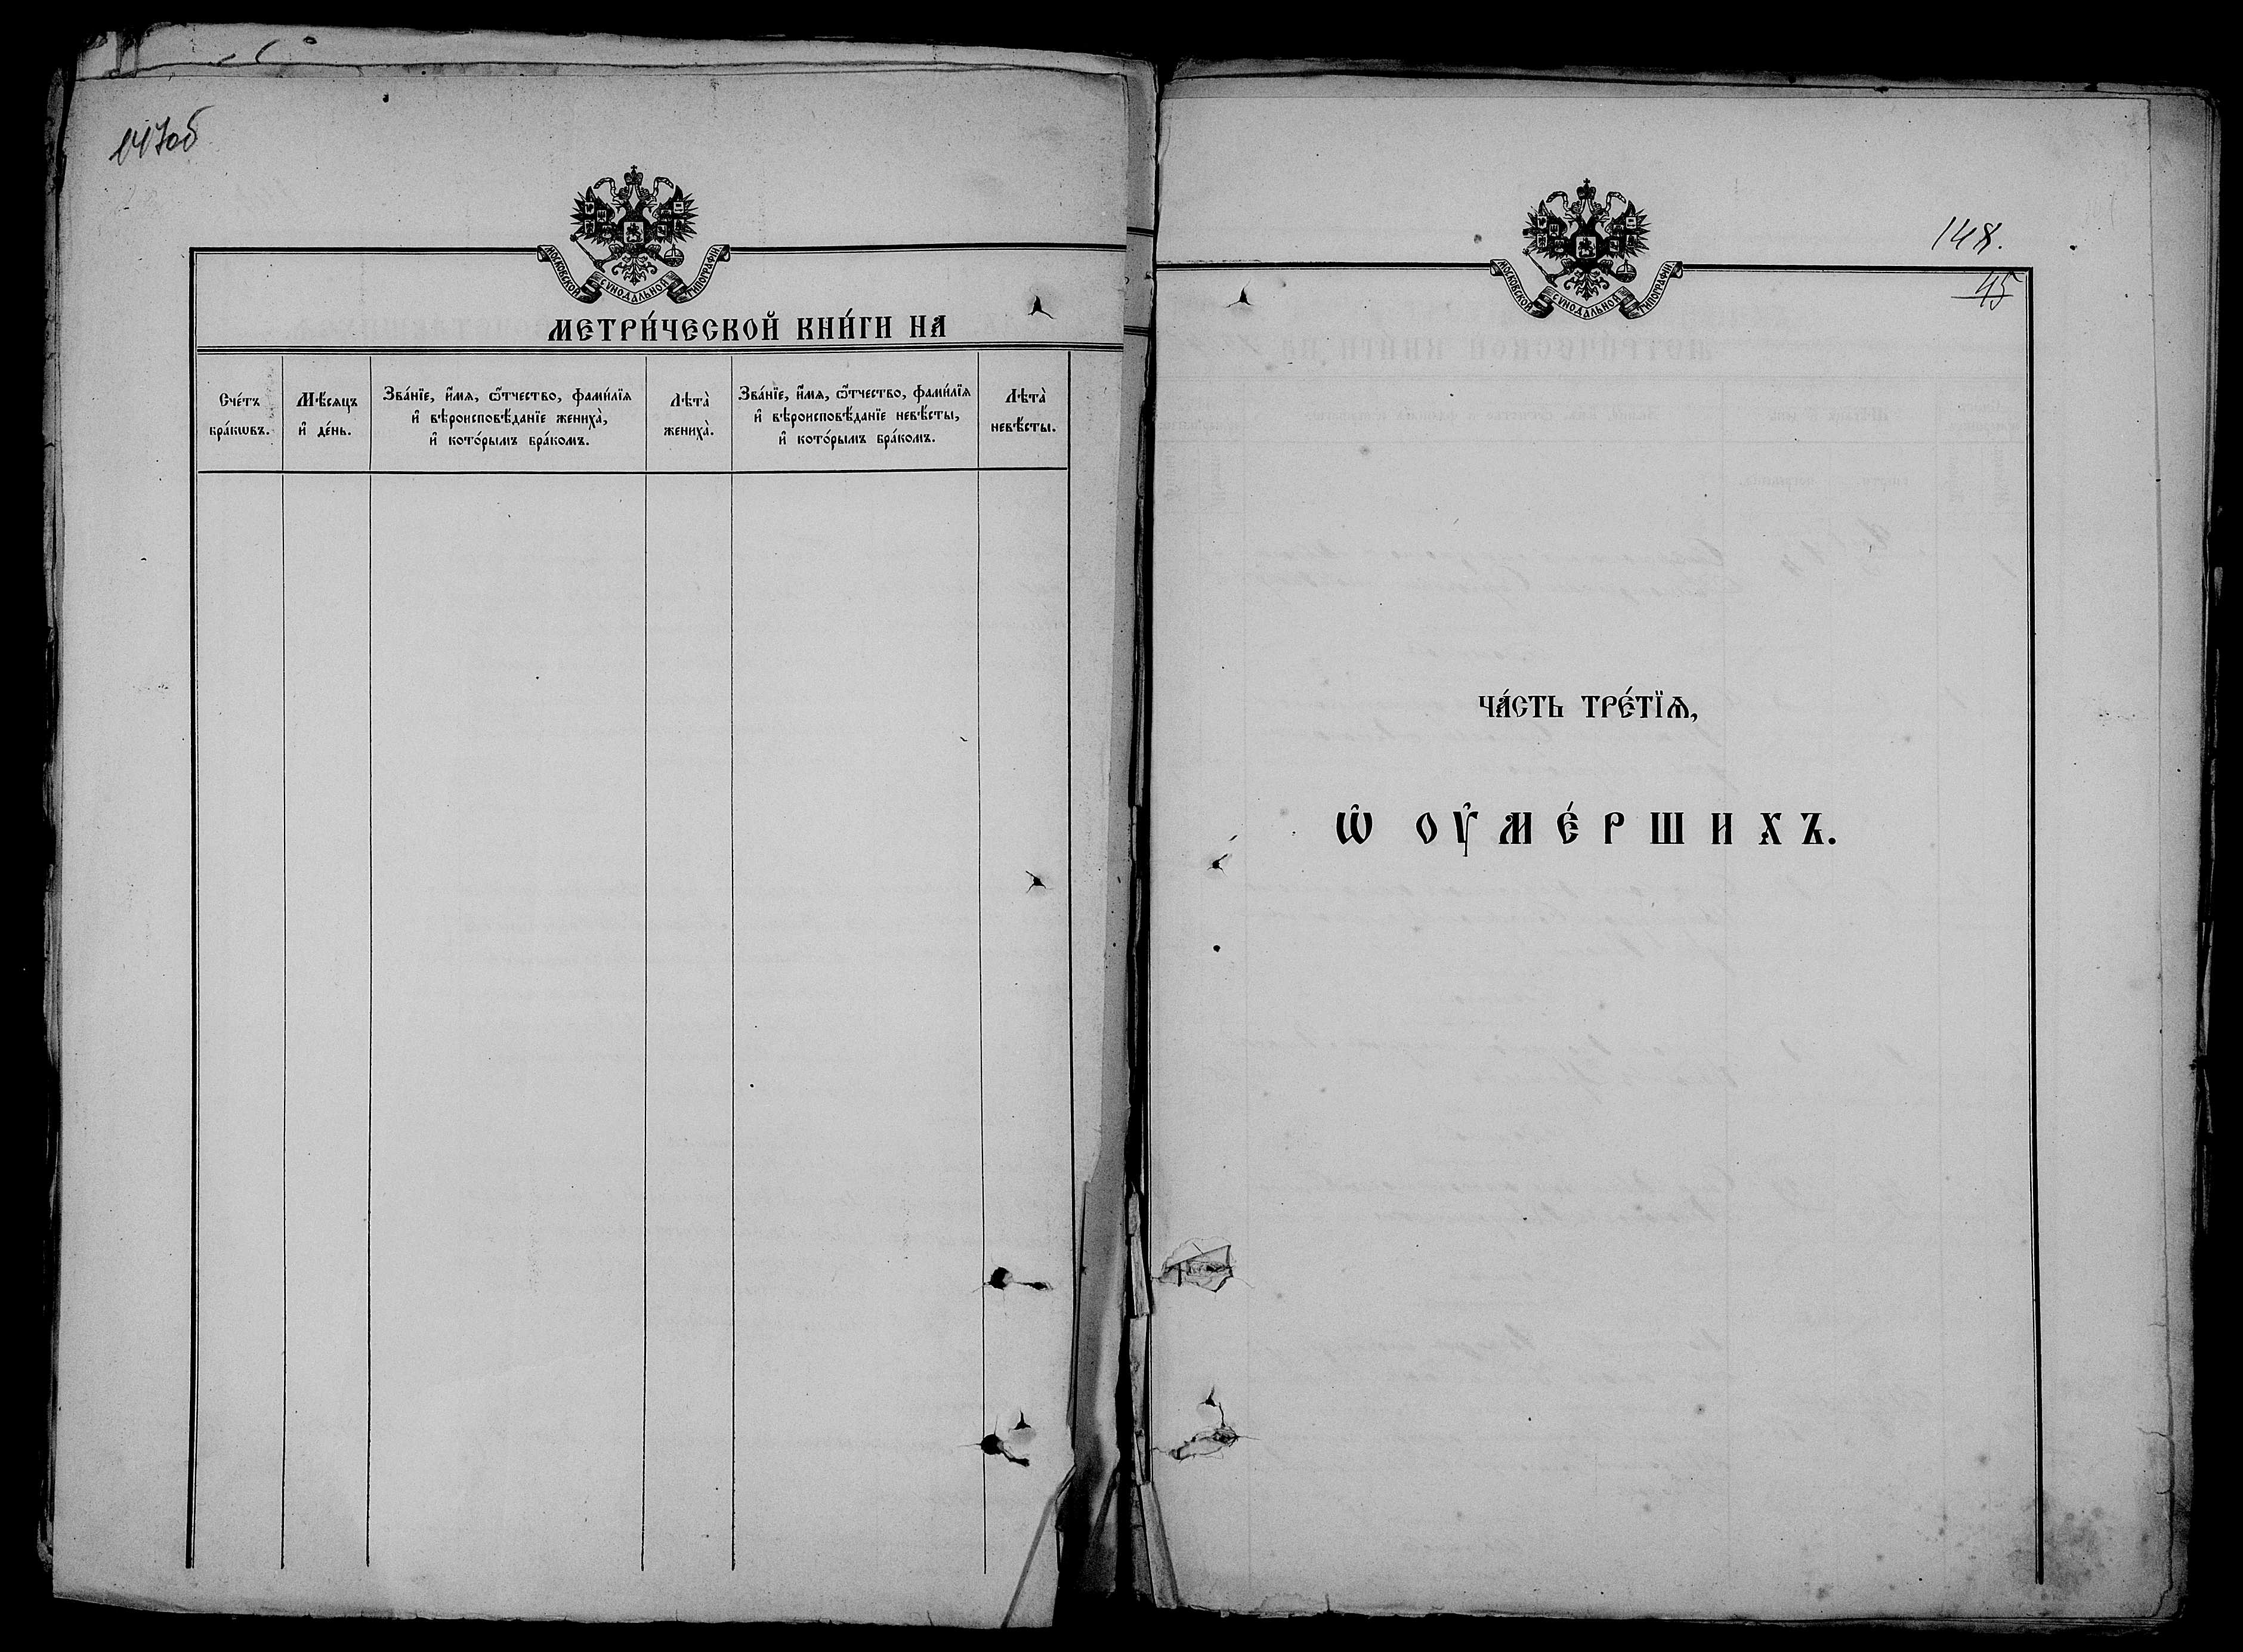 147об
МОСКОВСКОЙ СѴНОДАЛЬНОЙ ТИПОГРАФІИ.
МЕТРИ́ЧЕСКОЙ КНИ́ГИ НА
Сче́тъ бра́кѡвъ.
Мѣ́сяцъ и҆ де́нь.
Зва́нїе, и҆́мя, ѻ҆́тчество, фами́лїя
и҆ вѣроисповѣ́данїе жениха̀,
и҆ кото́рымъ бра́комъ.
Лѣта̀ жениха̀.
Зва́нїе, и҆́мя, ѻ҆́тчество, фами́лїя
и҆ вѣроисповѣ́данїе невѣ́сты,
и҆ кото́рымъ бра́комъ.
Лѣта̀ невѣ́сты.
148.
45
МОСКОВСКОЙ СѴНОДАЛЬНОЙ ТИПОГРАФІИ.
ЧА́СТЬ ТРЕ́ТЇѦ,
Ѽ ОУ҆МЕ́РШИХЪ.